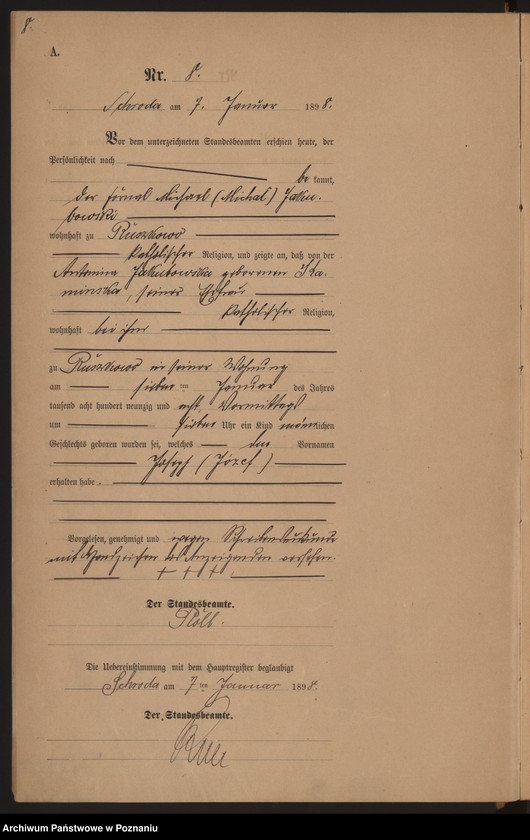 8.
A.
Nr. 8.
Schroda am 7. Januar 1898.
Vor dem unterzeichneten Standesbeamten erschien heute, der
Persönlichkeit nach
bekannt,
der Fornal Michael (Michal) Jaku-
bowski
wohnhaft zu Ruszkowo
katholischer Religion, und zeigte an, daß von der
Antonina Jakubowska geborenen Ka-
minska, seiner Ehefrau
katholischer Religion,
wohnhaft bei ihm
zu Ruszkowo in seiner Wohnung
am sieben ten Januar des Jahres
tausend acht hundert neunzig und acht, Vormittags
um sieben Uhr ein Kind männlichen
Geschlechts geboren worden sei, welches den Vornamen
Joseph (Józef)
erhalten habe.
Vorgelesen, genehmigt und wegen Schreibensunkunde
mit Handzeichen des Anzeigenden versehen.
+ + +
Der Standesbeamte.
Die Uebereinstimmung mit dem Hauptregister beglaubigt
Schroda am 7ten Januar 1898.
Der Standesbeamte.
Archiwum Państwowe w Poznaniu